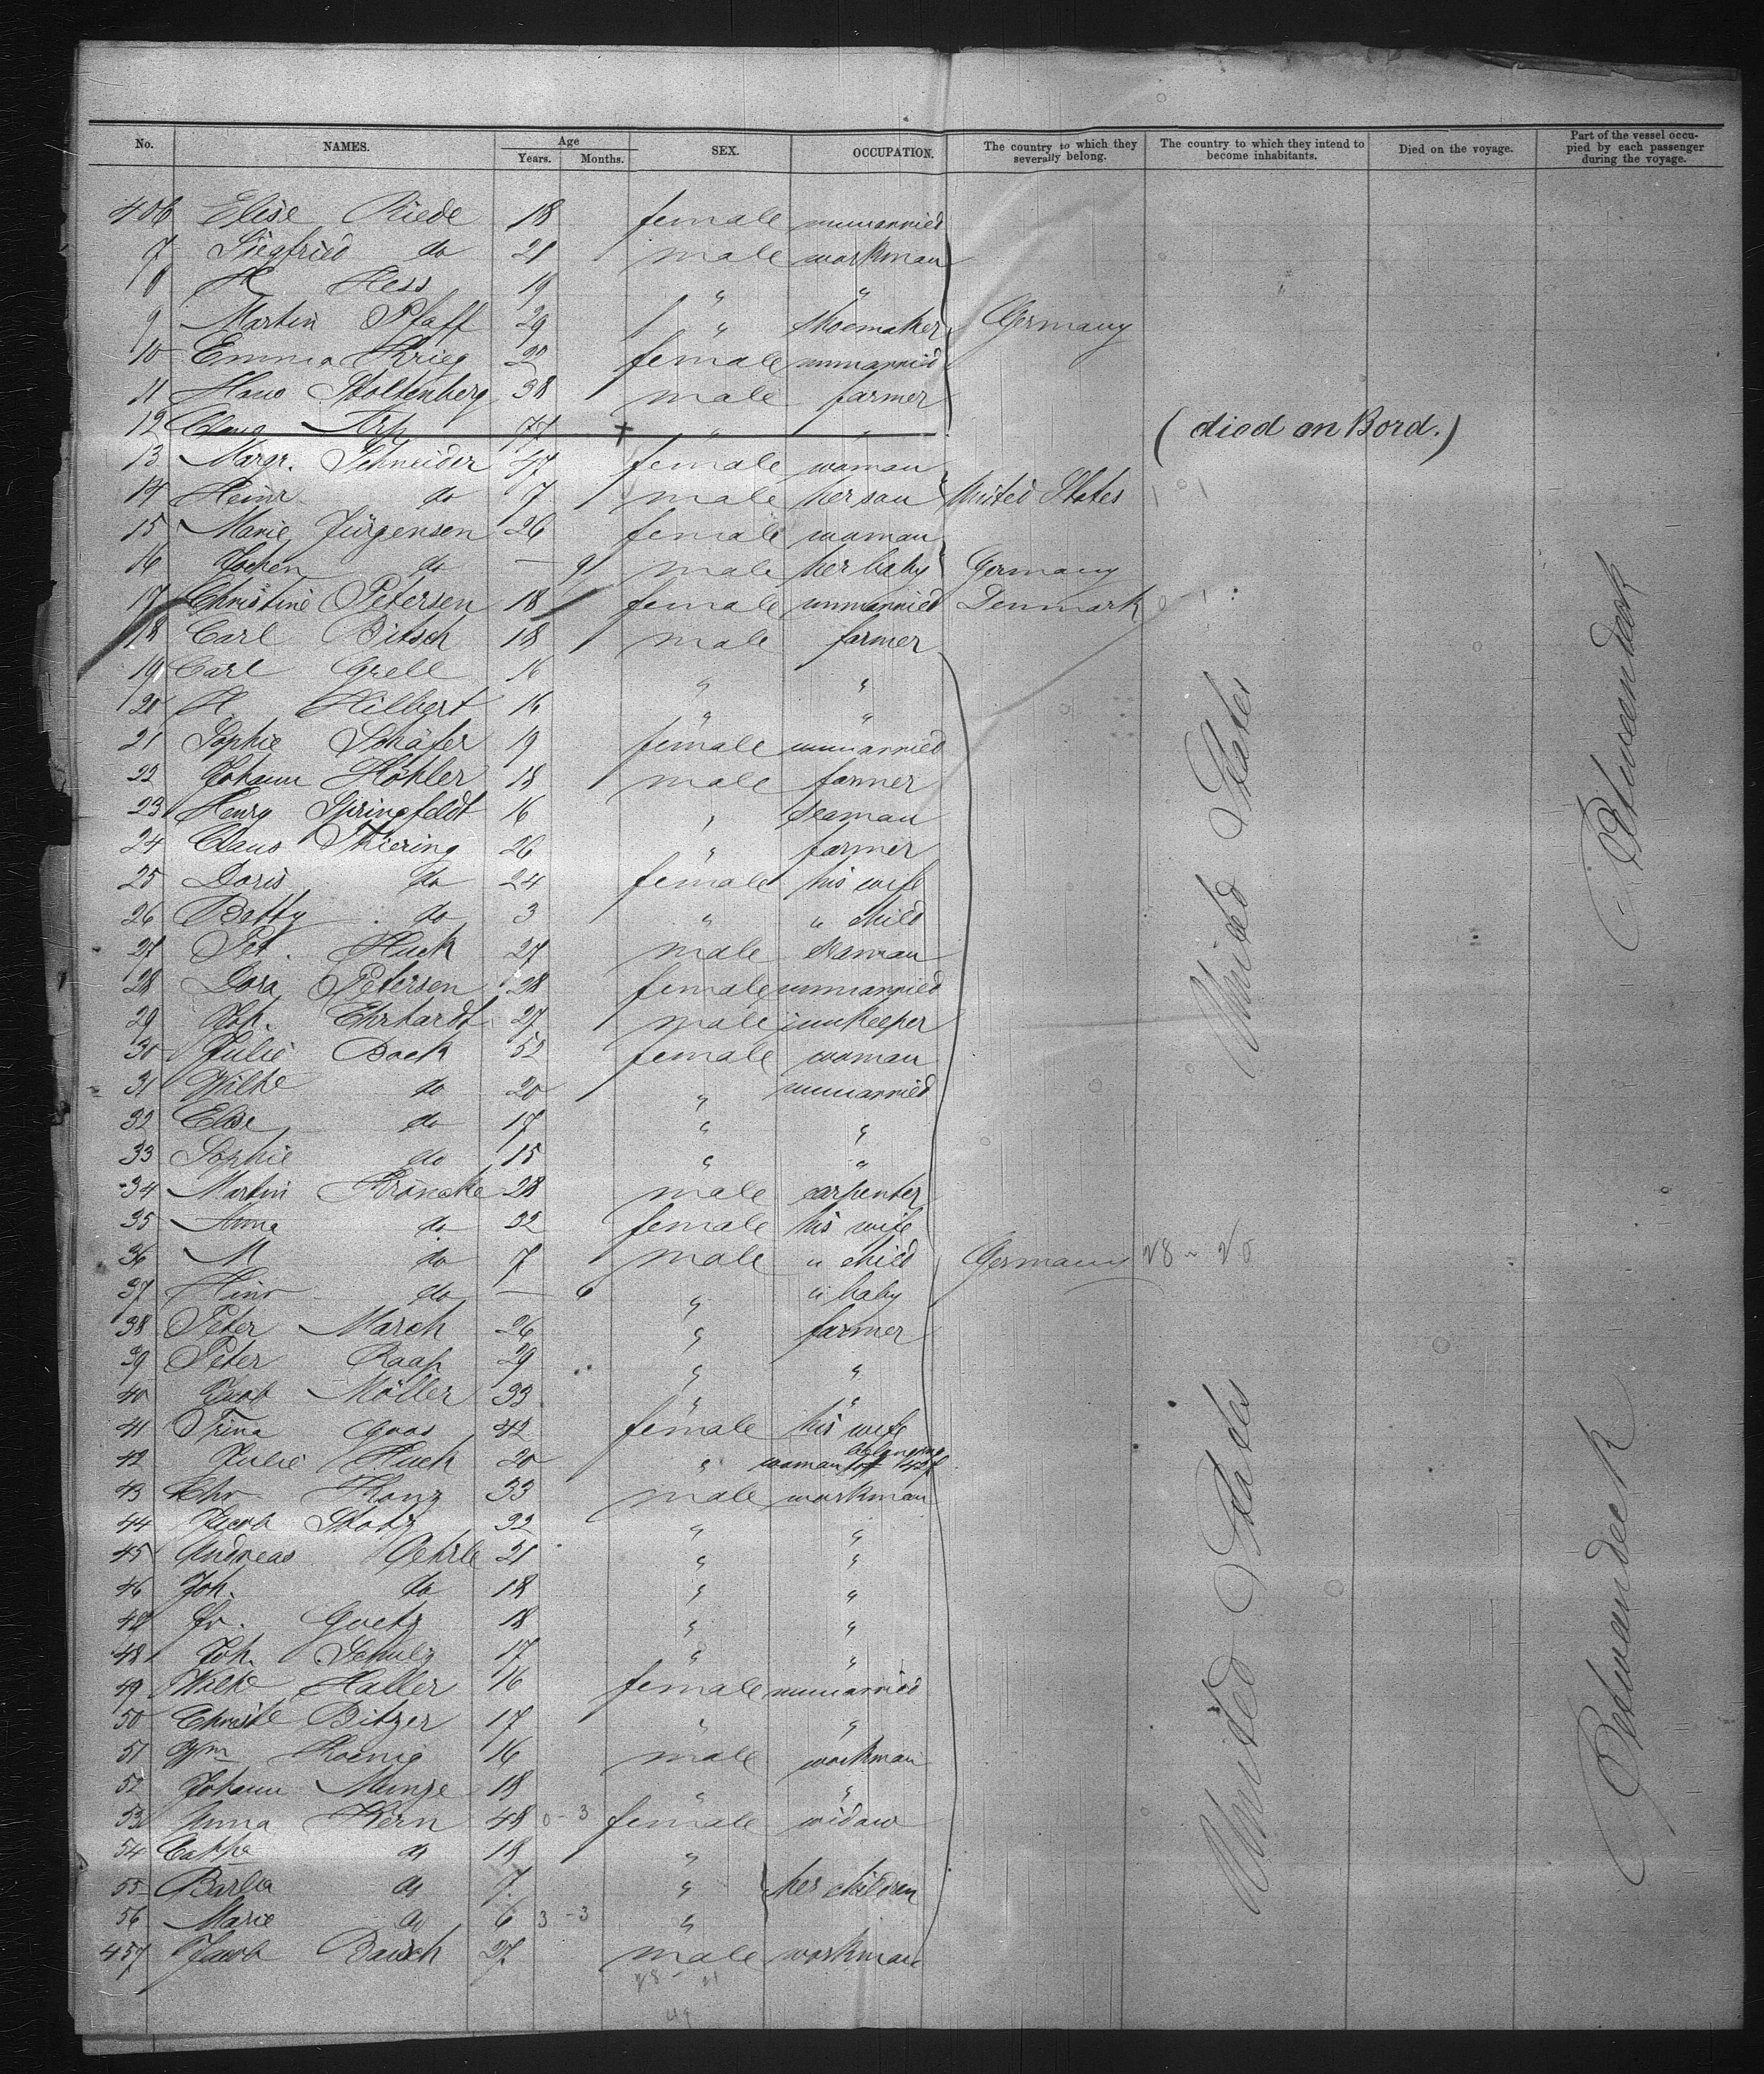 No. NAMES. Age Years. Months. SEX. OCCUPATION. The country to which they severally belong. The country to which they intend to become inhabitants. Died on the voyage. Part of the vessel occupied by each passenger during the voyage.
406 Elise Riede 18 female unmarried
7 Siegfried do 21 male workman
8 H Hess 19 " "
9 Martin Pfaff 29 " shoemaker Germany
10 Emma Krieg 22 female unmarried
11 Hans Stoltenberg 38 male farmer
12 Claus Arp 77 † " " (died on Bord.)
13 Margr. Schneider 47 female woman
14 Heinr do 7 male her son United States
15 Marie Jürgensen 26 female woman
16 Jochen do — 9 male her baby Germany
17 Christine Petersen 18 female unmarried Denmark
18 Carl Bitsch 18 male farmer
19 Carl Grell 16 " "
20 H Hilbert 16 " "
21 Sophie Schäfer 19 female unmarried
22 Johann Höhler 18 male farmer
23 Henry Springfeldt 16 " seaman
24 Claus Thiering 26 " farmer
25 Doris do 24 female his wife
26 Betty do 3 " " child
27 Pet. Huck 27 male seaman
28 Dora Petersen 28 female unmarried
29 Joh. Ehrhardt 27 male innkeeper
30 Julie Bock 52 female woman
31 Wilhe do 20 " unmarried
32 Elise do 17 " "
33 Sophie do 15 " "
34 Martin 28 male carpenter
35 Anna do 32 female his wife
36 M do 7 male " child Germany 28 - 20
37 Hinr do — 6 " " baby
38 Peter March 26 " farmer
39 Peter Raap 29 " "
40 Jacob Möller 33 " "
41 Trina Goos 42 female his wife
42 Julie Huck 20 " woman belonging to 427
43 Chr Konz 33 male workman
44 Jacob Stotz 32 " "
45 Andreas Oehrle 21 " "
46 Joh. do 18 " "
47 Fr. Goetz 18 " "
48 Joh. Schulz 17 " "
49 Wilhe Haller 16 female unmarried
50 Christe Bitzer 17 " "
51 Wm Koenig 16 male workman
52 Johann Munze 18 " "
53 Anna Kern 48 0 - 3 female widow
54 Cathe do 18 "
55 Barba do 7 " her children
56 Marie do 6 3 - 3 "
457 Jacob Bausch 27 male workman
28 - 21
49
United States
United States
Betweendeck
Betweendeck